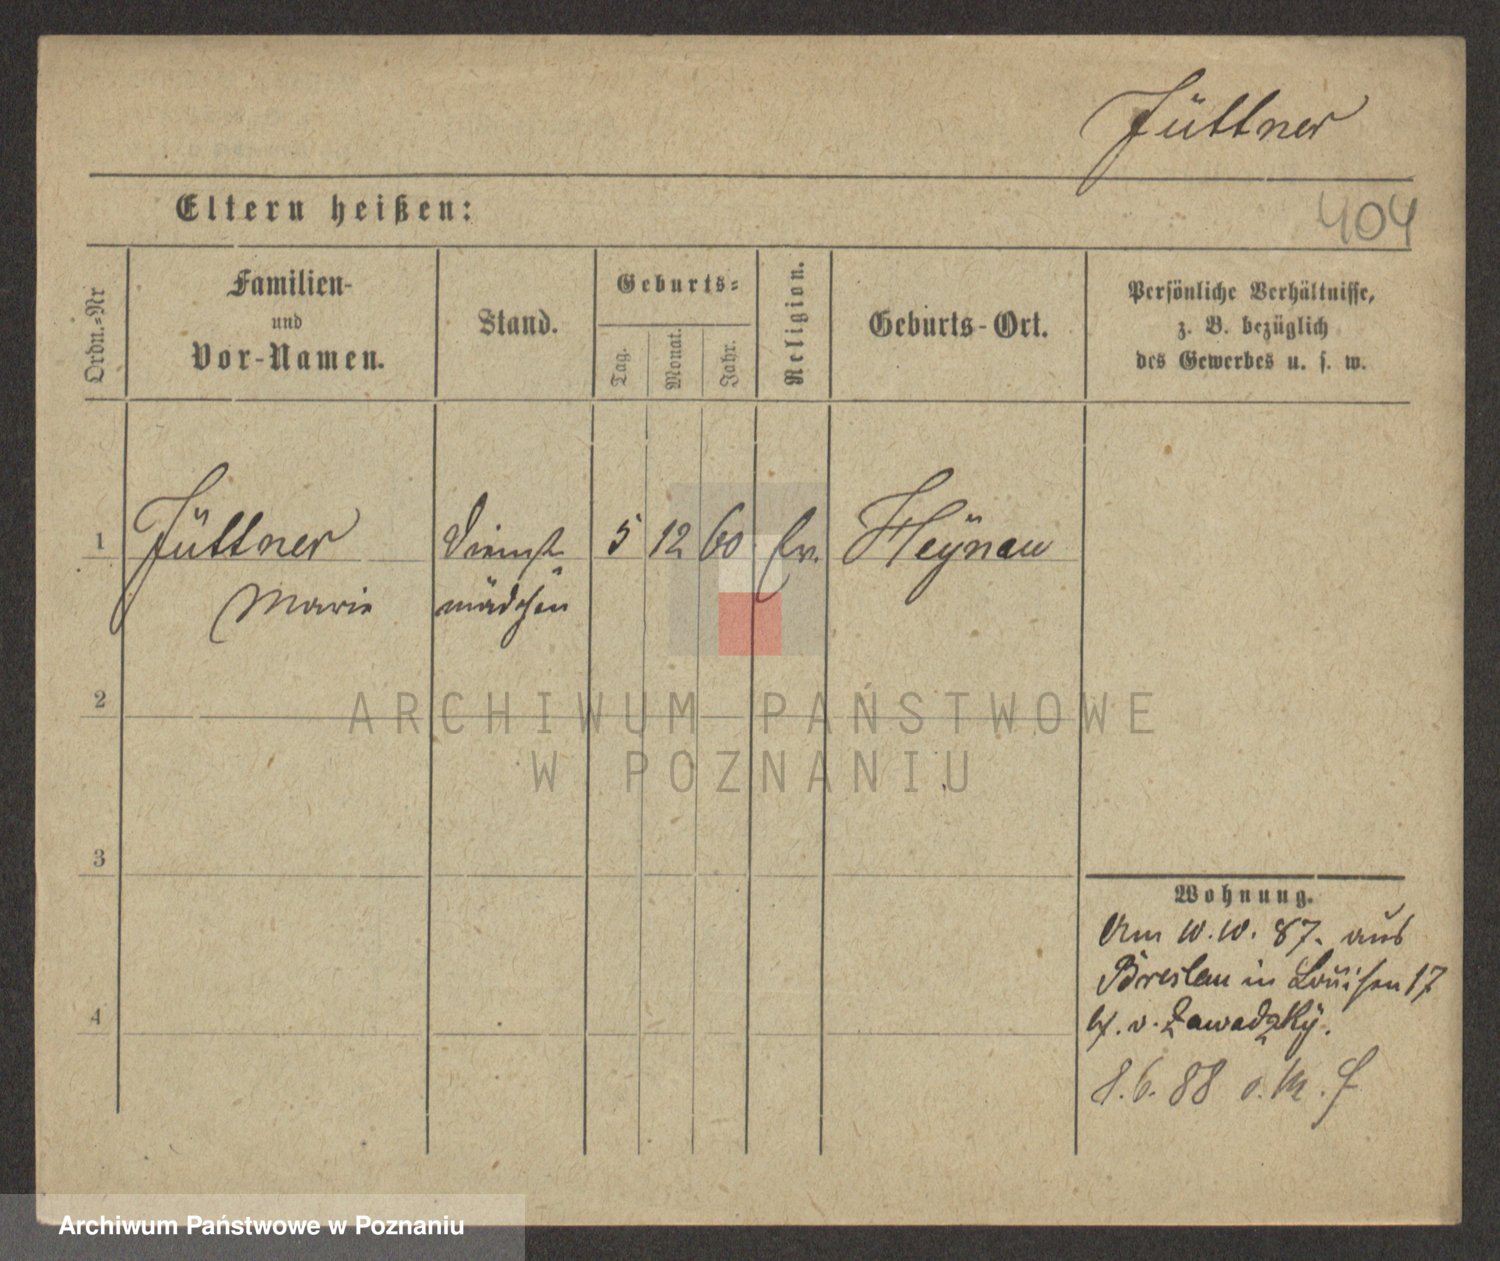 Jüttner
Eltern heißen:
404
Ordn.-Nr
Familien-
und
Vor-Namen.
Stand.
Geburts-
Tag.
Monat.
Jahr.
Religion.
Geburts-Ort.
Persönliche Verhältnisse,
z. B. bezüglich
des Gewerbes u. s. w.
1 Jüttner Dienst 5 12 60 ev. Heynau
Marie mädchen
2
ARCHIWUM PAŃSTWOWE
W POZNANIU
3
4
Wohnung.
Am 10.10.87. aus
Breslau in Louisen 17
b/. v. Zawadzky.
8.6.88
Archiwum Państwowe w Poznaniu